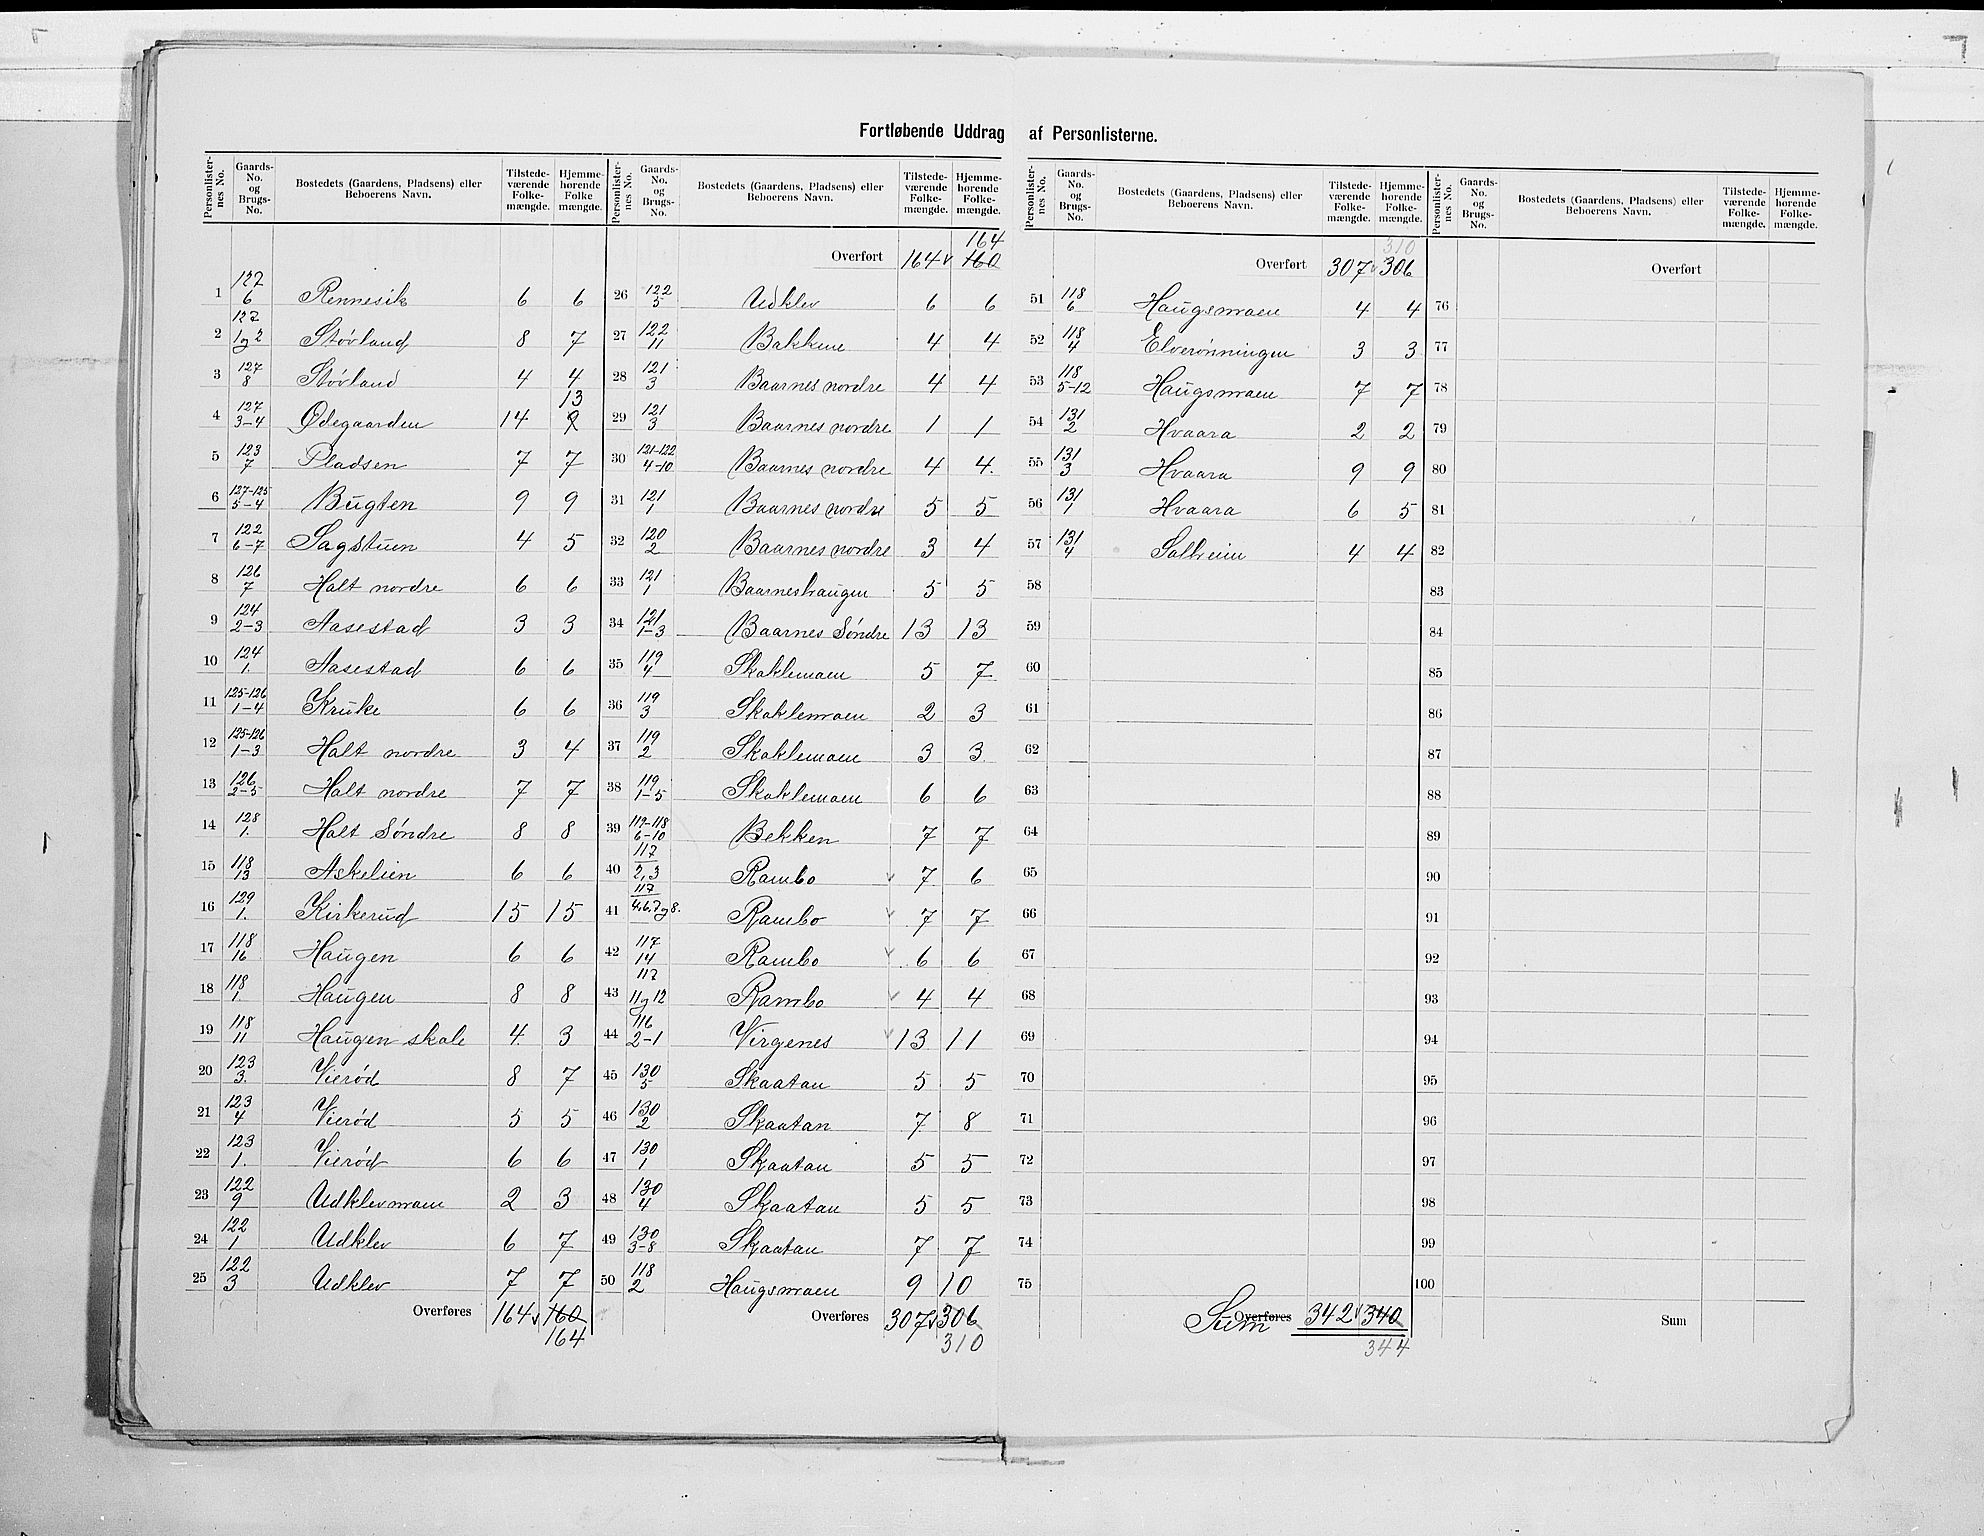 Fortløbende Uddrag af Personlisterne.
Personlister-nes No. Gaards-No. og Brugs-No. Bostedets (Gaardens, Pladsens) eller Beboerens Navn. Tilstede-værende Folke-mængde. Hjemme-hørende Folke mængde.
1 127/6 Rennesik 6 6
2 127/1 og 2 Støvland 8 7
3 127/8 Støvland 4 4
4 127/3-4 Ødegaarden 14 9 13
5 123/7 Pladsen 7 7
6 127-125/5-4 Bugten 9 9
7 122/6-7 Sagstuen 4 5
8 126/7 Halt nordre 6 6
9 124/2-3 Aasestad 3 3
10 124/1. Aasestad 6 6
11 125-126/1-4 Kruke 6 6
12 125-126/1-3 Halt nordre 3 4
13 126/2-5 Halt nordre 7 7
14 128/1. Halt Søndre 8 8
15 118/13 Askelien 6 6
16 129/1. Kirkerud 15 15
17 118/16 Haugen 6 6
18 118/1. Haugen 8 8
19 118/11 Haugen skole 4 3
20 123/3. Vierød 8 7
21 123/4 Vierød 5 5
22 123/1. Vierød 6 6
23 122/9 Udklevmoen 2 3
24 122/1 Udklev 6 7
25 122/3 Udklev 7 7
Overføres 164 160
164
Personlister-nes No. Gaards-No. og Brugs-No. Bostedets (Gaardens, Pladsens) eller Beboerens Navn. Tilstede-værende Folke-mængde. Hjemme-hørende Folke-mængde.
164
Overført 164 160
26 122/5 Udklev 6 6
27 122/11 Bakkene 4 4
28 121/3 Baarnes nordre 4 4
29 121/3 Baarnes nordre 1 1
30 121-122/4-10 Baarnes nordre 4 4.
31 121/1 Baarnes nordre 5 5
32 120/2 Baarnes nordre 3 4
33 121/1 Baarneshaugen 5 5
34 121/1-3 Baarnes Søndre 13 13
35 119/4 Skoklemoen 5 7
36 119/3 Skoklemoen 2 3
37 119/2 Skoklemoen 3 3
38 119/1-5 Skoklemoen 6 6
39 119-118/6-10 Bekken 7 7
40 117/2,3 Rambo 7 6
41 117/4.6.7 og 8. Rambo 7 7
42 117/14 Rambo 6 6
43 117/11 og 12 Rambo 4 4
44 116/2-1 Virgenes 13 11
45 130/5 Skaatan 5 5
46 130/2 Skaatan 7 8
47 130/1 Skaatan 5 5
48 130/4 Skaatan 5 5
49 130/3-8 Skaatan 7 7
50 118/2 Haugsmoen 9 10
Overføres 307 306
310
Personlister-nes No. Gaards-No. og Brugs-No. Bostedets (Gaardens, Pladsens) eller Beboerens Navn. Tilstede-værende Folke-mængde. Hjemme-hørende Folke-mængde.
310
Overført 307 306
51 118/6 Haugsmoen 4 4
52 118/4 Elverønningen 3 3
53 118/5-12 Haugsmoen 7 7
54 131/2 Hvaara 2 2
55 131/3 Hvaara 9 9
56 131/1 Hvaara 6 5
57 131/4 Solheim 4 4
58
59
60
61
62
63
64
65
66
67
68
69
70
71
72
73
74
75
Overføres Sum 342 340
344
Personlister-nes No. Gaards-No. og Brugs-No. Bostedets (Gaardens, Pladsens) eller Beboerens Navn. Tilstede-værende Folke-mængde. Hjemme-hørende Folke-mængde.
Overført
76
77
78
79
80
81
82
83
84
85
86
87
88
89
90
91
92
93
94
95
96
97
98
99
100
Sum